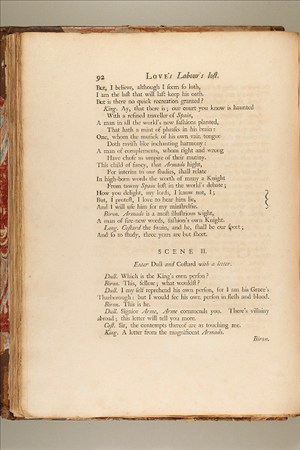 92 LOVE's Labour's lost.
But, I believe, although I seem so loth,
I am the last that will last keep his oath.
But is there no quick recreation granted?
King. Ay, that there is; our court you know is haunted
With a refined traveller of Spain,
A man in all the world's new fashion planted,
That hath a mint of phrases in his brain:
One, whom the musick of his own vain tongue
Doth ravish like inchanting harmony:
A man of complements, whom right and wrong
Have chose as umpire of their mutiny.
This child of fancy, that Armado hight,
For interim to our studies, shall relate
In high-born words the worth of many a Knight
From tawny Spain lost in the world's debate;
How you delight, my lords, I know not, I;
But, I protest, I love to hear him lie,
And I will use him for my minstrelsie.
Biron. Armado is a most illustrious wight,
A man of fire-new words, fashion's own Knight.
Long. Costard the swain, and he, shall be our sport;
And so to study, three years are but short.
SCENE II.
Enter Dull and Costard with a letter.
Dull. Which is the King's own person?
Biron. This, fellow; what wouldst?
Dull. I my self reprehend his own person, for I am his Grace's
Tharborough: but I would see his own person in flesh and blood.
Biron. This is he.
Dull. Signior Arme, Arme commends you. There's villainy
abroad; this letter will tell you more.
Cost. Sir, the contempts thereof are as touching me.
King. A letter from the magnificent Armado.
Biron.